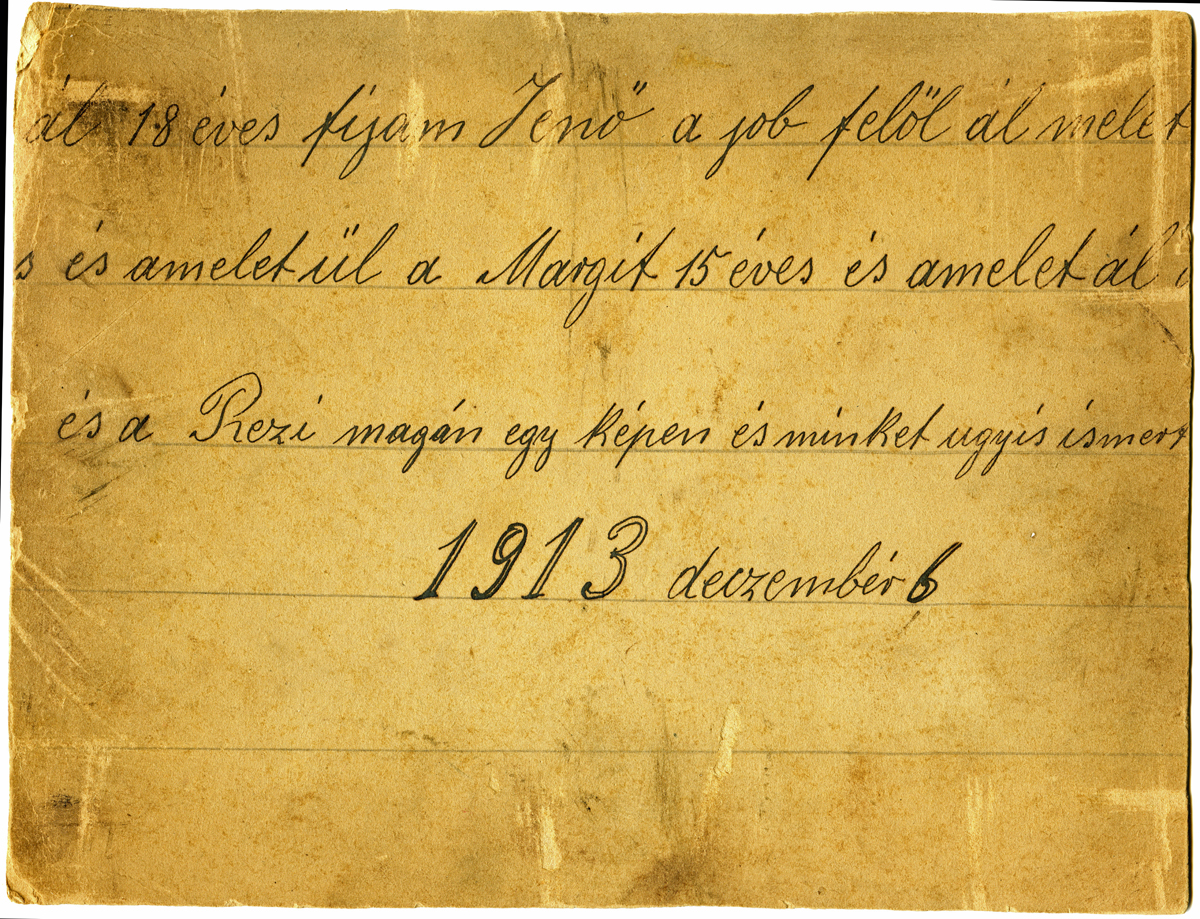 ál 18 éves fijam Jenő a job felől ál melet
s és amelet ül a Margit 15 éves és amelet ál
és a Rezi magán egy képen és minket ugyis ismert
1913 deczembér 6